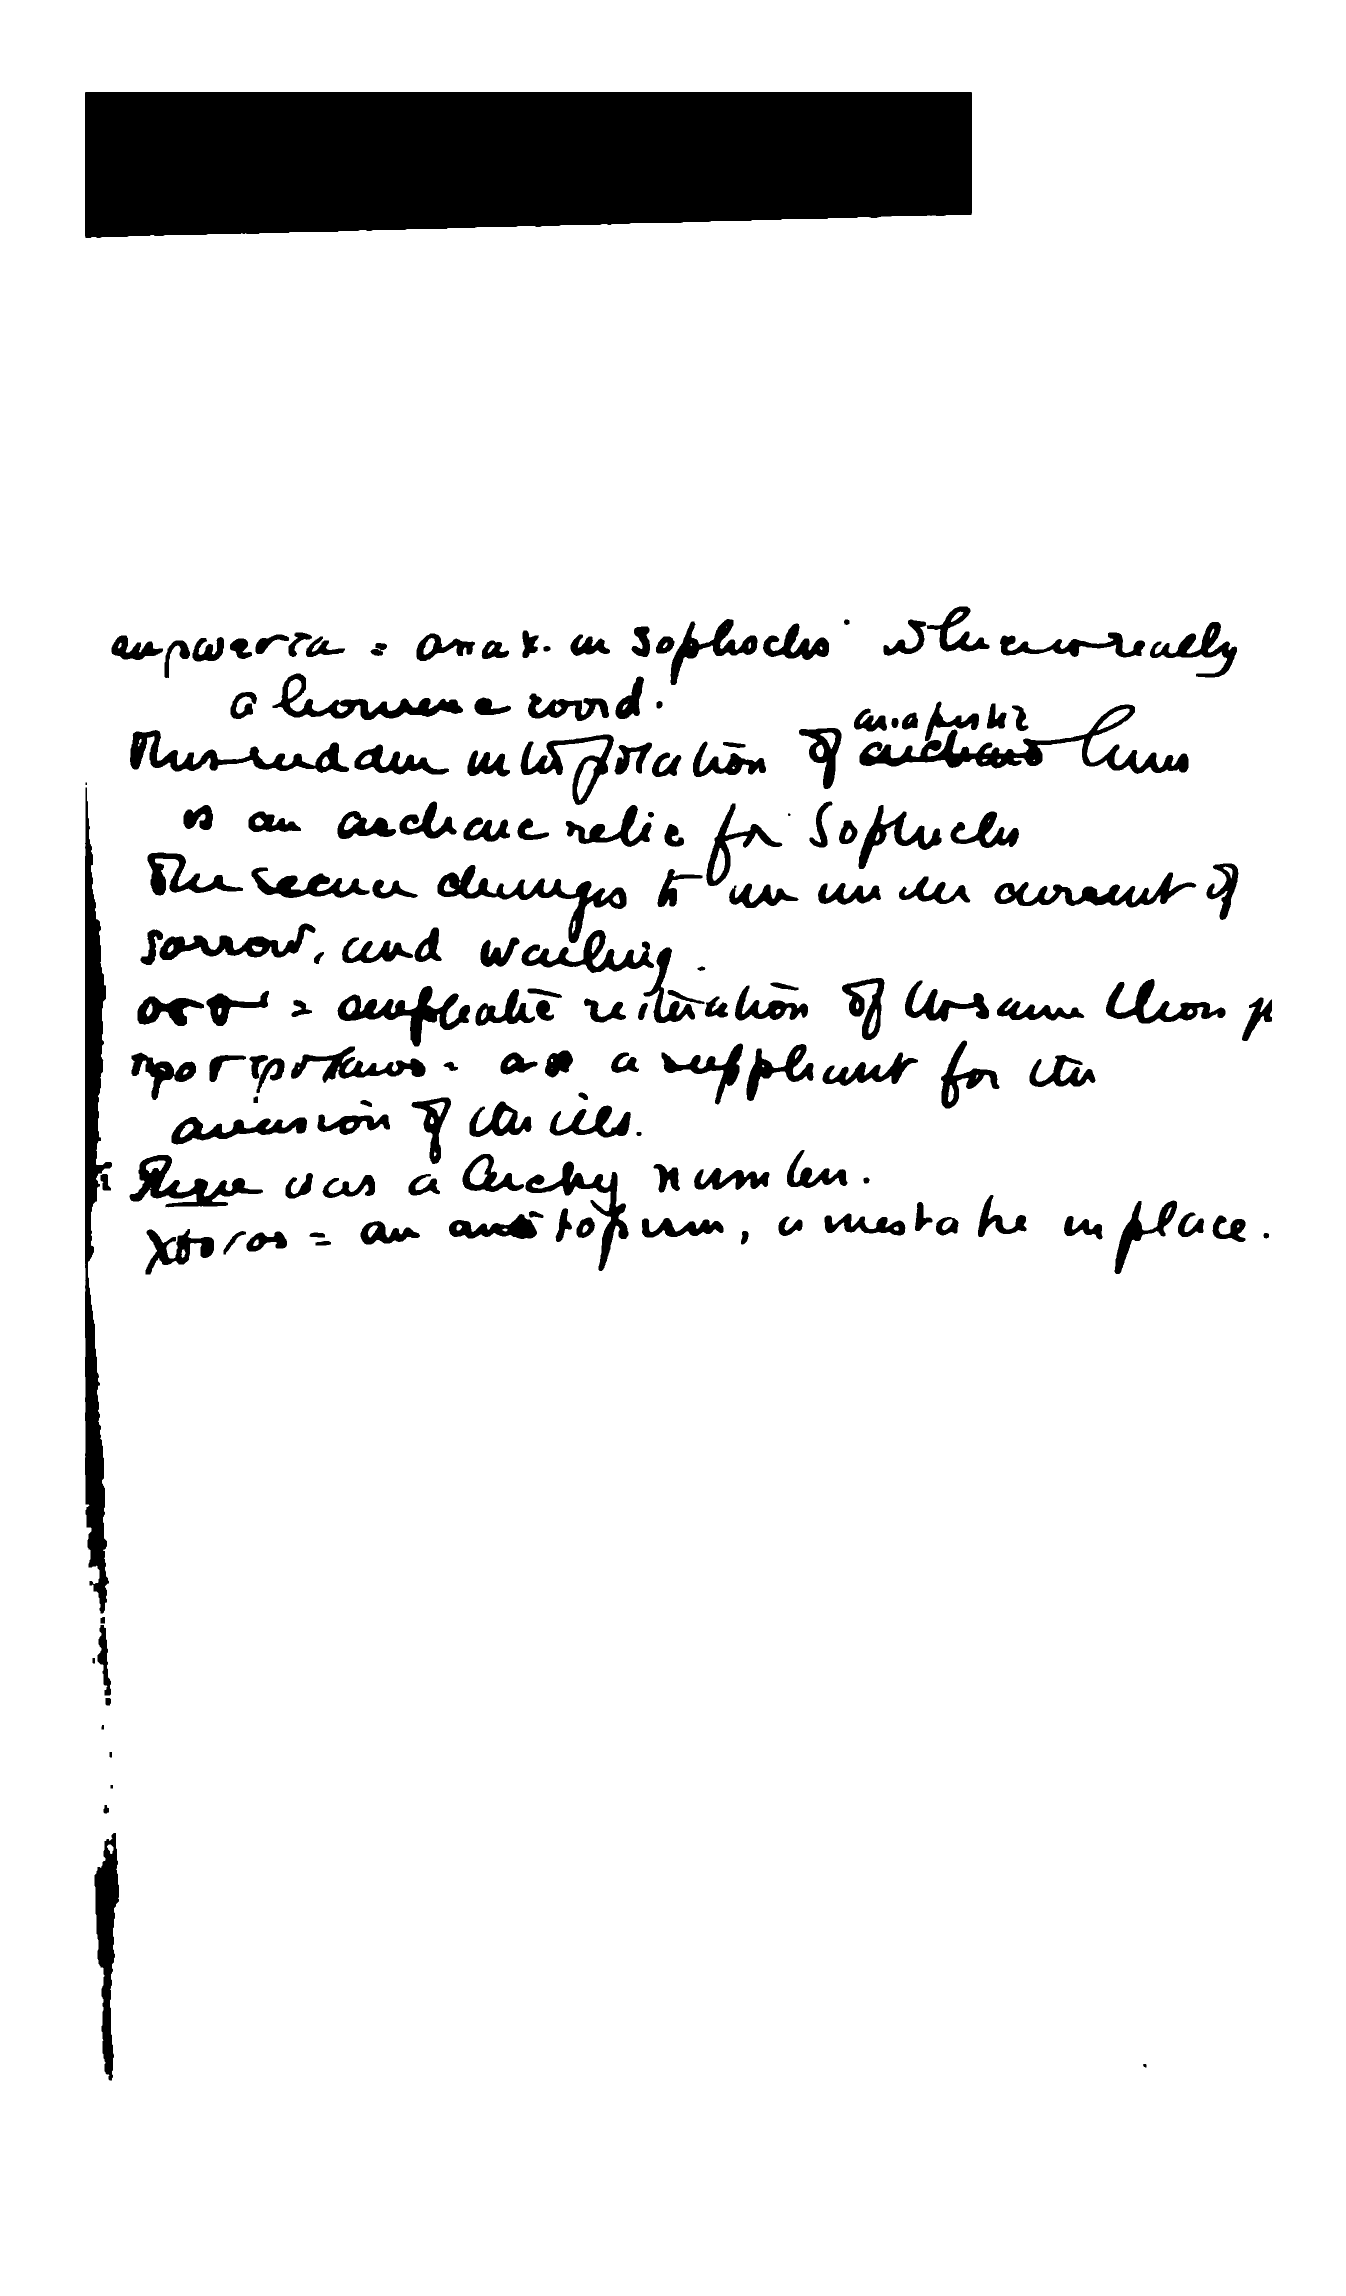 = απαχ. in Sophocles. It is really
a homeric word.
This sudden interpolation of anapestic lines
is an archaic relic for Sophocles
The scene changes to an under current of
sorrow, and wailing.
= emphatic reiteration of the same
= as a suppliant for the
aversion of the ills.
was a lucky number.
= an topism, a mistake in place.